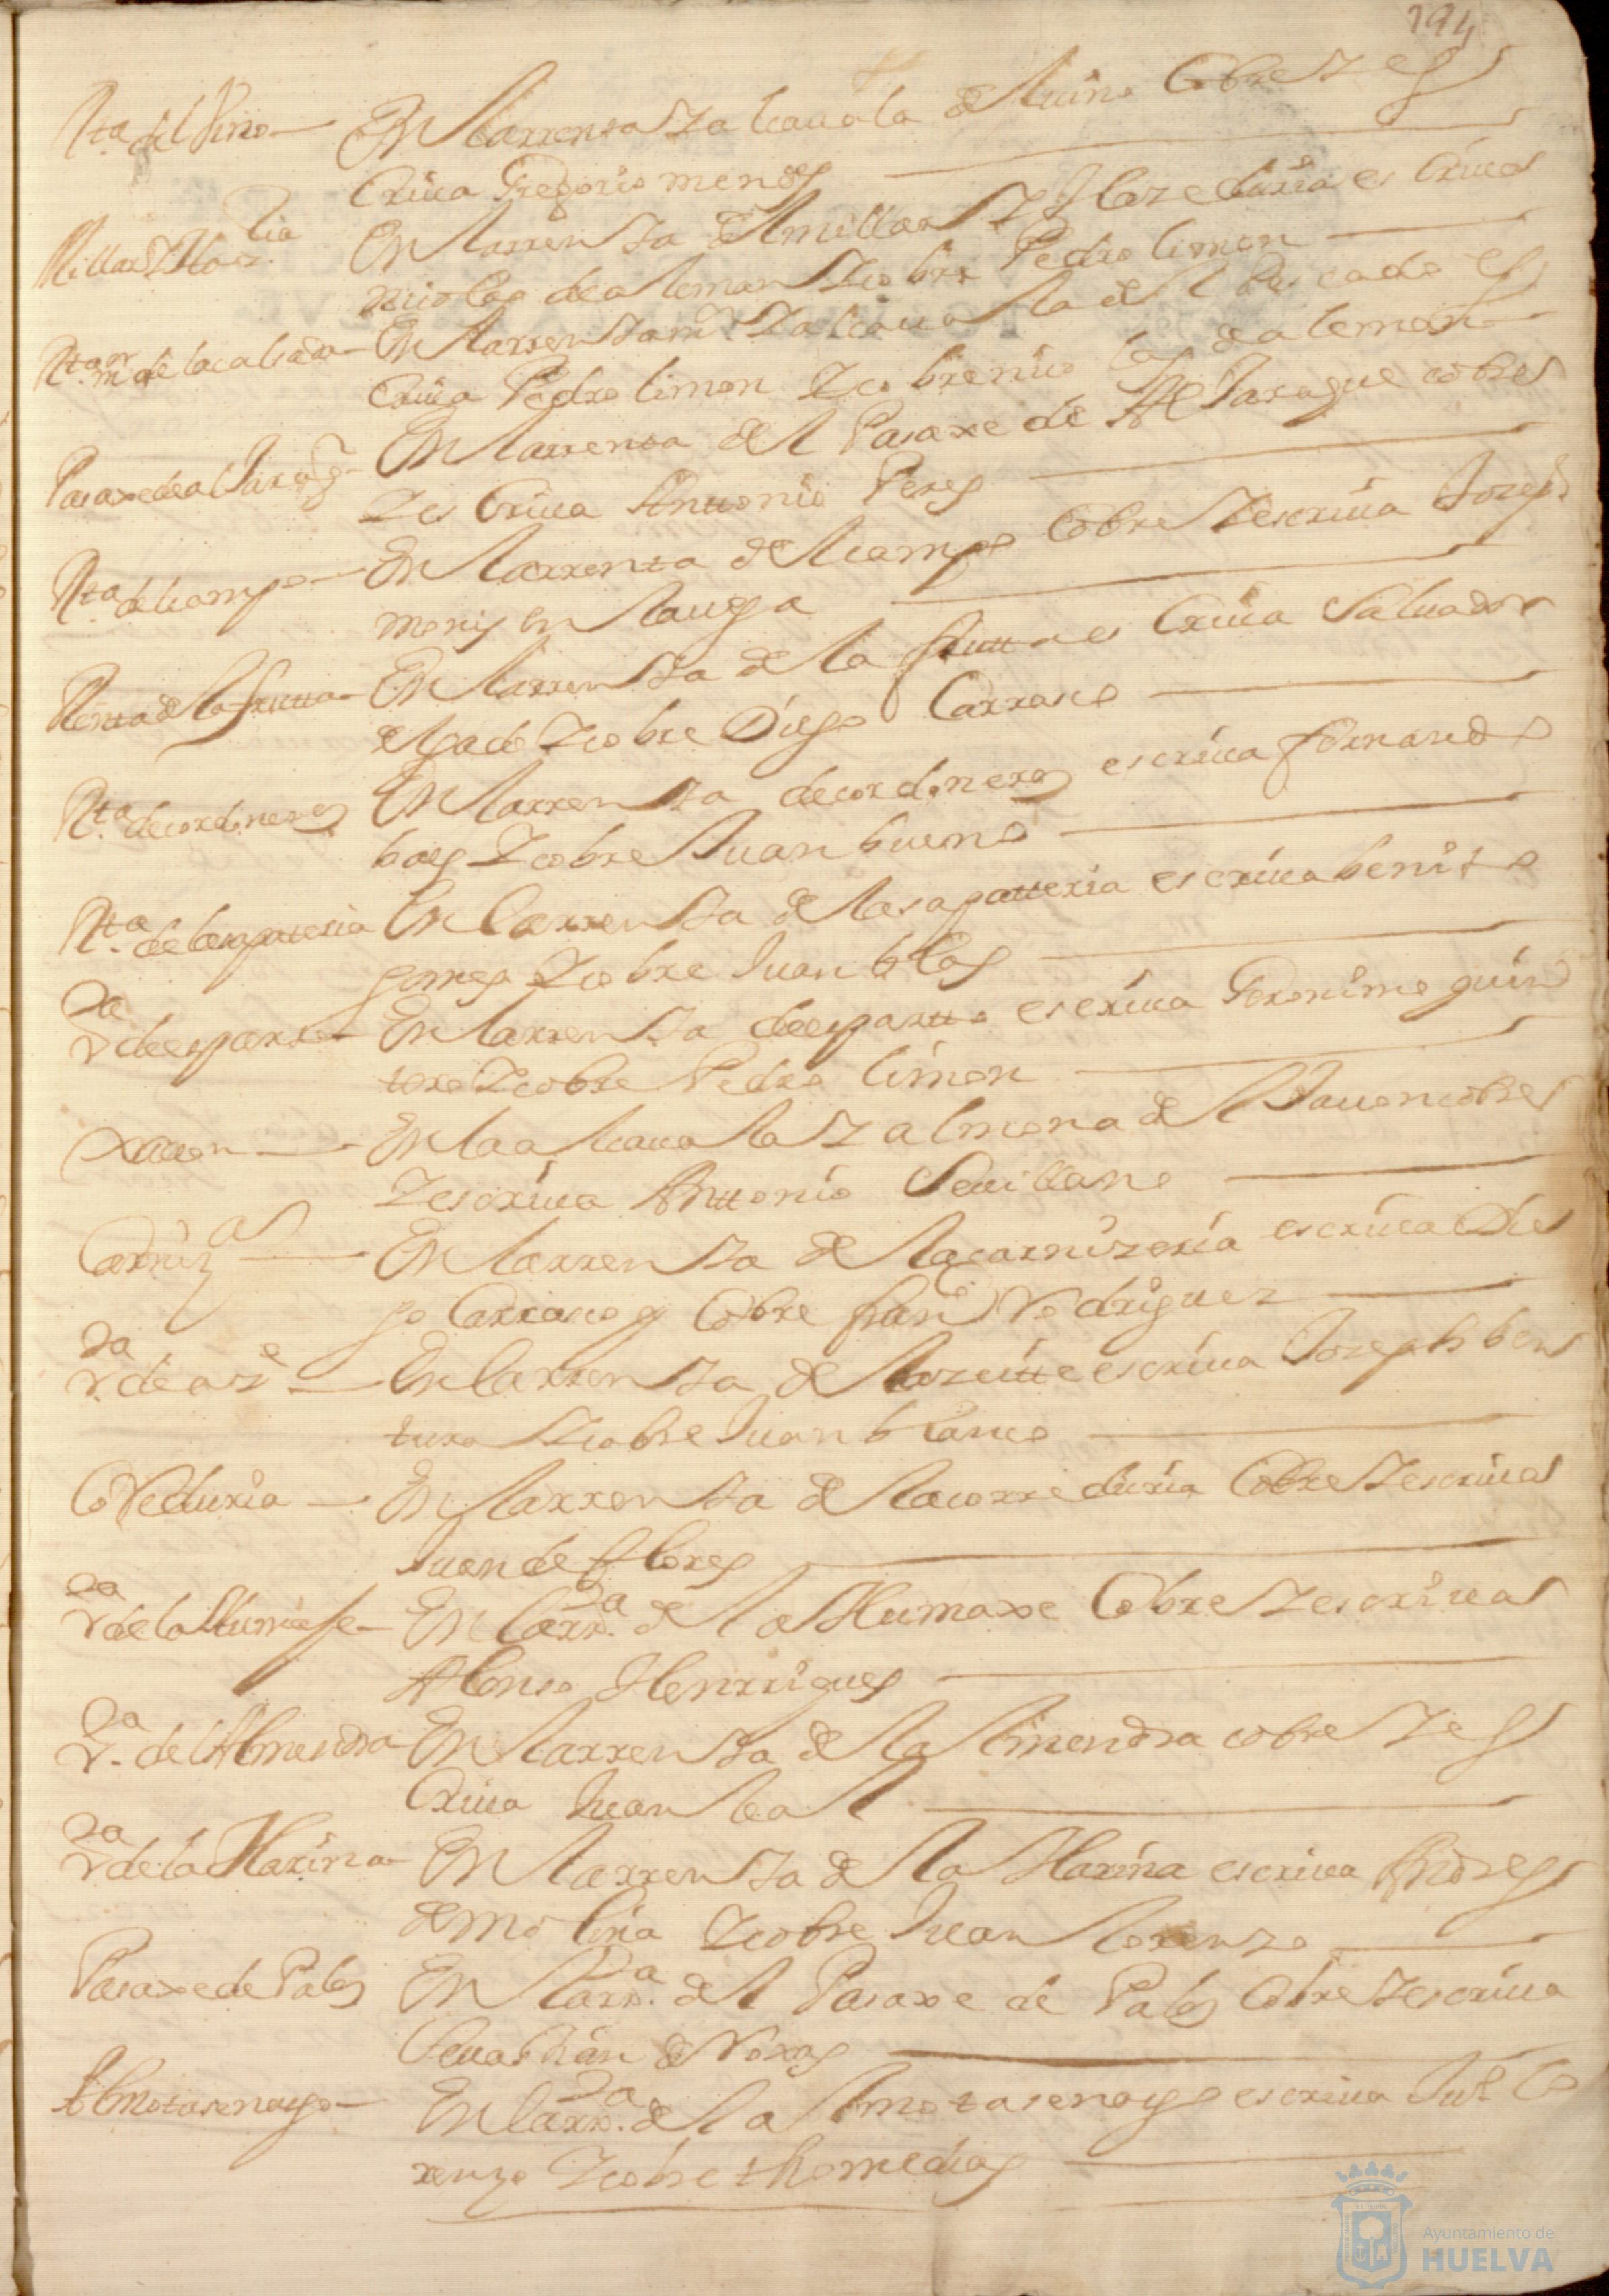 194
Rta del Vino — En la rrenta y alcauala del uino cobre y es
criua Gregorio mendes
Millar y Hazia En la rrenta del millar y Hazeduria escriua
nicolas de aleman y cobre Pedro limon
Rta mr de la calsada — En la rrenta mr y alcauala del Pescado es
criua Pedro limon y cobre nicolas de aleman
Pasaxe de alJarag — En la rrenta del Pasaxe de AlJaraque cobre
y escriua Anttonio Peres
Rta del campo — En la rrenta del campo cobre y escriua Joseph
en la uega
Renta de la frutta — En la rrenta de la frutta escriua Saluador
delgado y cobre Diego Carrasco
Rta de cordoneros En la rrenta de cordoneros escriua fernando
baes y cobre Juan bueno
Rta de la sapateria En la rrenta de la sapatteria escriua benito
gomes y cobre Juan blas
rda de esparto — En la rrenta de espartto escriua Geronimo quin
tero y cobre Pedro limon
Xauon — En la alcauala y almona del Jauon cobre
y escriua Anttonio Seuillano
Carniza — En la rrenta de la carnizeria escriua Die
go Carrasco y Cobre franco Rodriguez
rda de aze — En la rrenta del azeitte escriua Joseph ben
tura y cobre Juan blanco
CoReduria — En la rrenta de la correduria Cobre y escriua
Juan de flores
rda de la Humaxe — En la rrda de la Humaxe Cobre y escriua
Alonso Henrriques
rda del Almendra En la rrenta de la almendra cobre y es
criua Juan leal
rda de la Harina — En la rrenta de la Harina escriua Andres
de molina y cobre Juan lorenzo
Pasaxe de Palos En la rrda del Pasaxe de Palos Cobre y escriua
Seuastian de Roxas
Almotasenasgo — En la rrda de la Almotasenasgo escriua Jun lo
renzo y cobre thome dias
Ayuntamiento de
HUELVA